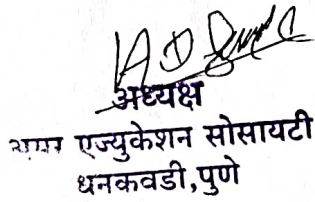 अध्यक्ष
एज्युकेशन सोसायटी
धनकवडी,पुणे